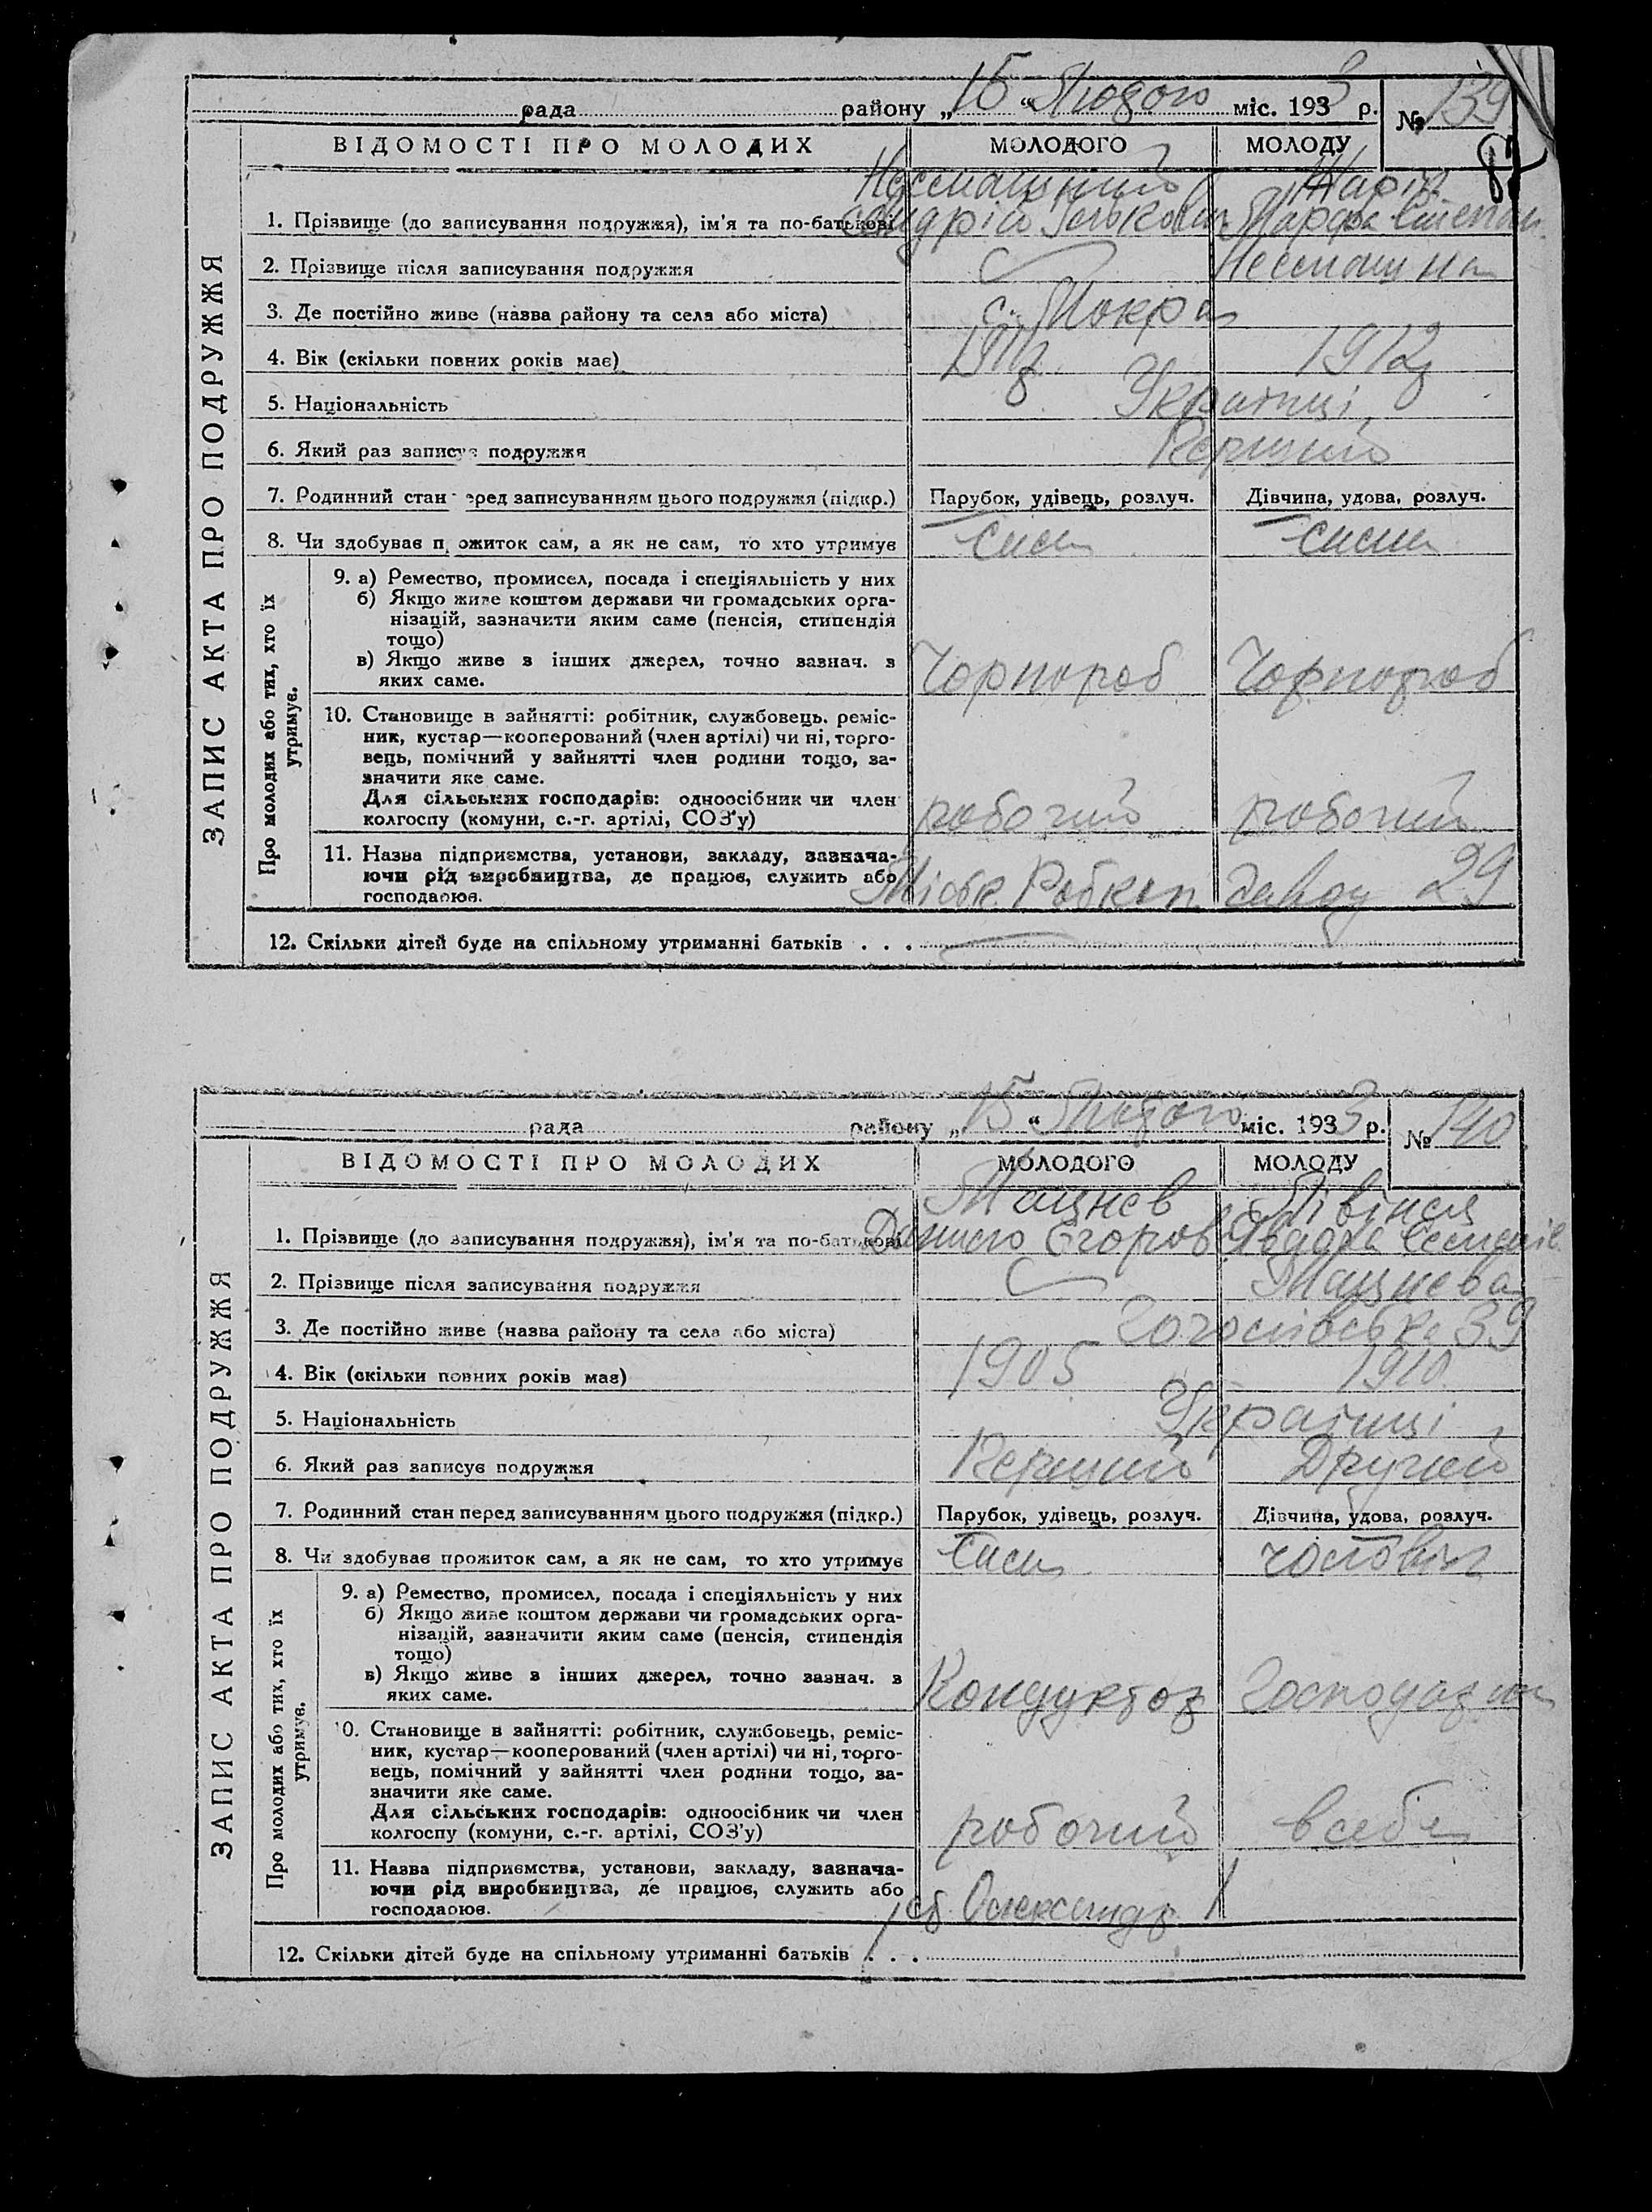 рада район у „15“ Лютого міс. 1933 р. № 139
87
ВІДОМОСТІ ПРО МОЛОДИХ МОЛОДОГО МОЛОДУ
ЗАПИС АКТА ПРО ПОДРУЖЖЯ
1. Прізвище (до записування подружжя), ім'я та по-батькові
2. Прізвище після записування подружжя
3. Де постійно живе (назва району та села або міста) с. Мокра
4. Вік (скільки повних років має) 1912
5. Національність Українці
6. Який раз записує подружжя Перший
7. Родинний стан перед записуванням цього подружжя (підкр.) Парубок, удівець, розлуч. Дівчина, удова, розлуч.
8. Чи здобував прожиток сам, а як не сам, то хто утримує сам сама
Про молодих або тих, хто їх утримує.
9. а) Ремество, промисел, посада і спеціяльність у них
б) Якщо живе коштом держави чи громадських орга-
нізацій, зазначити яким саме (пенсія, стипендія
тощо)
в) Якщо живе з інших джерел, точно зазнач. з
яких саме. Чорнороб Чорнороб
10. Становище в зайнятті: робітник, службовець, реміс-
ник, кустар—кооперований (член артілі) чи ні, торго-
вець, помічний у зайнятті член родини тощо, за-
значити яке саме.
Для сільських господарів: одноосібник чи член
колгоспу (комуни, с.-г. артілі, СОЗ'у) робочий робочий
11. Назва підприємства, установи, закладу, зазнача-
ючи рід виробництва, де працює, служить або
господарює. заводу 29
12. Скільки дітей буде на спільному утриманні батьків . . .
рада району „15“ Лютого міс. 1933 р. № 140
ВІДОМОСТІ ПРО МОЛОДИХ МОЛОДОГО МОЛОДУ
ЗАПИС АКТА ПРО ПОДРУЖЖЯ
Мацнев
1. Прізвище (до записування подружжя), ім'я та по-батькові Данило Егоров
2. Прізвище після записування подружжя Мацнева
3. Де постійно живе (назва району та села або міста) 39
4. Вік (скільки повних років має) 1905 1910
5. Національність Українці
6. Який раз записує подружжя Перший Другий
7. Родинний стан перед записуванням цього подружжя (підкр.) Парубок, удівець, розлуч. Дівчина, удова, розлуч.
8. Чи здобував прожиток сам, а як не сам, то хто утримує сам чоловік
Про молодих або тих, хто їх утримує.
9. а) Ремество, промисел, посада і спеціяльність у них
б) Якщо живе коштом держави чи громадських орга-
нізацій, зазначити яким саме (пенсія, стипендія
тощо)
в) Якщо живе з інших джерел, точно зазнач. з
яких саме. Кондуктор
10. Становище в зайнятті: робітник, службовець, реміс-
ник, кустар—кооперований (член артілі) чи ні, торго-
вець, помічний у зайнятті член родини тощо, за-
значити яке саме.
Для сільських господарів: одноосібник чи член
колгоспу (комуни, с.-г. артілі, СОЗ'у) робочий в себе
11. Назва підприємства, установи, закладу, зазнача-
ючи рід виробництва, де працює, служить або
господарює. Олександр 1
12. Скільки дітей буде на спільному утриманні батьків . . .